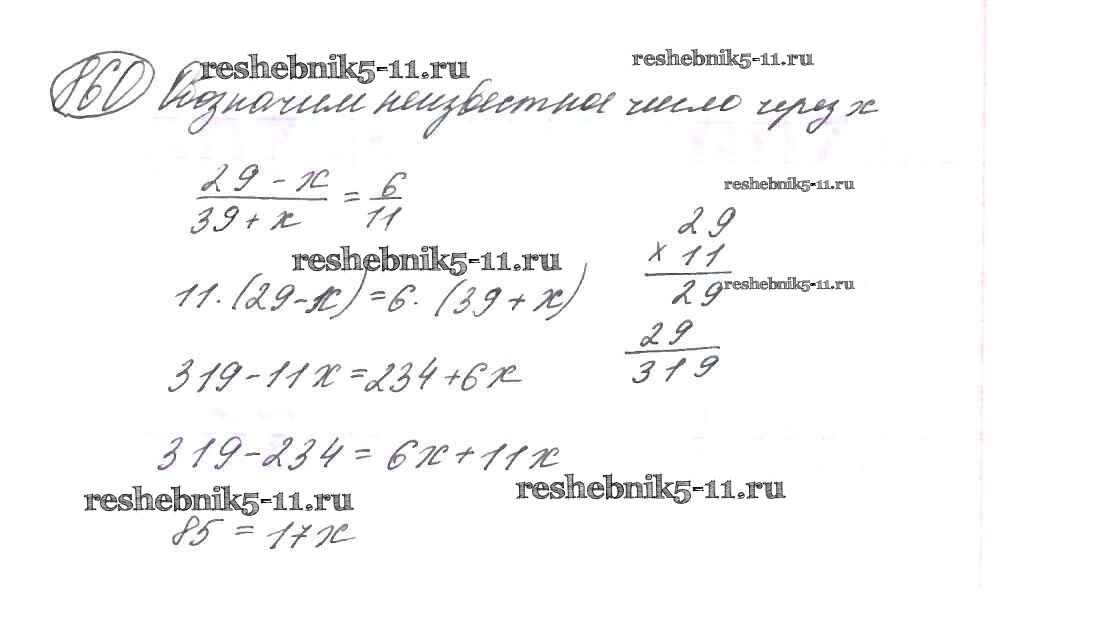 reshebnik5-11.ru reshebnik5-11.ru
860 Обозначим неизвестное число через x
29 - x / 39 + x = 6 / 11
reshebnik5-11.ru
29
× 11
29
29
319
reshebnik5-11.ru
reshebnik5-11.ru
11 · (29 - x) = 6 · (39 + x)
319 - 11x = 234 + 6x
319 - 234 = 6x + 11x
reshebnik5-11.ru reshebnik5-11.ru
85 = 17x